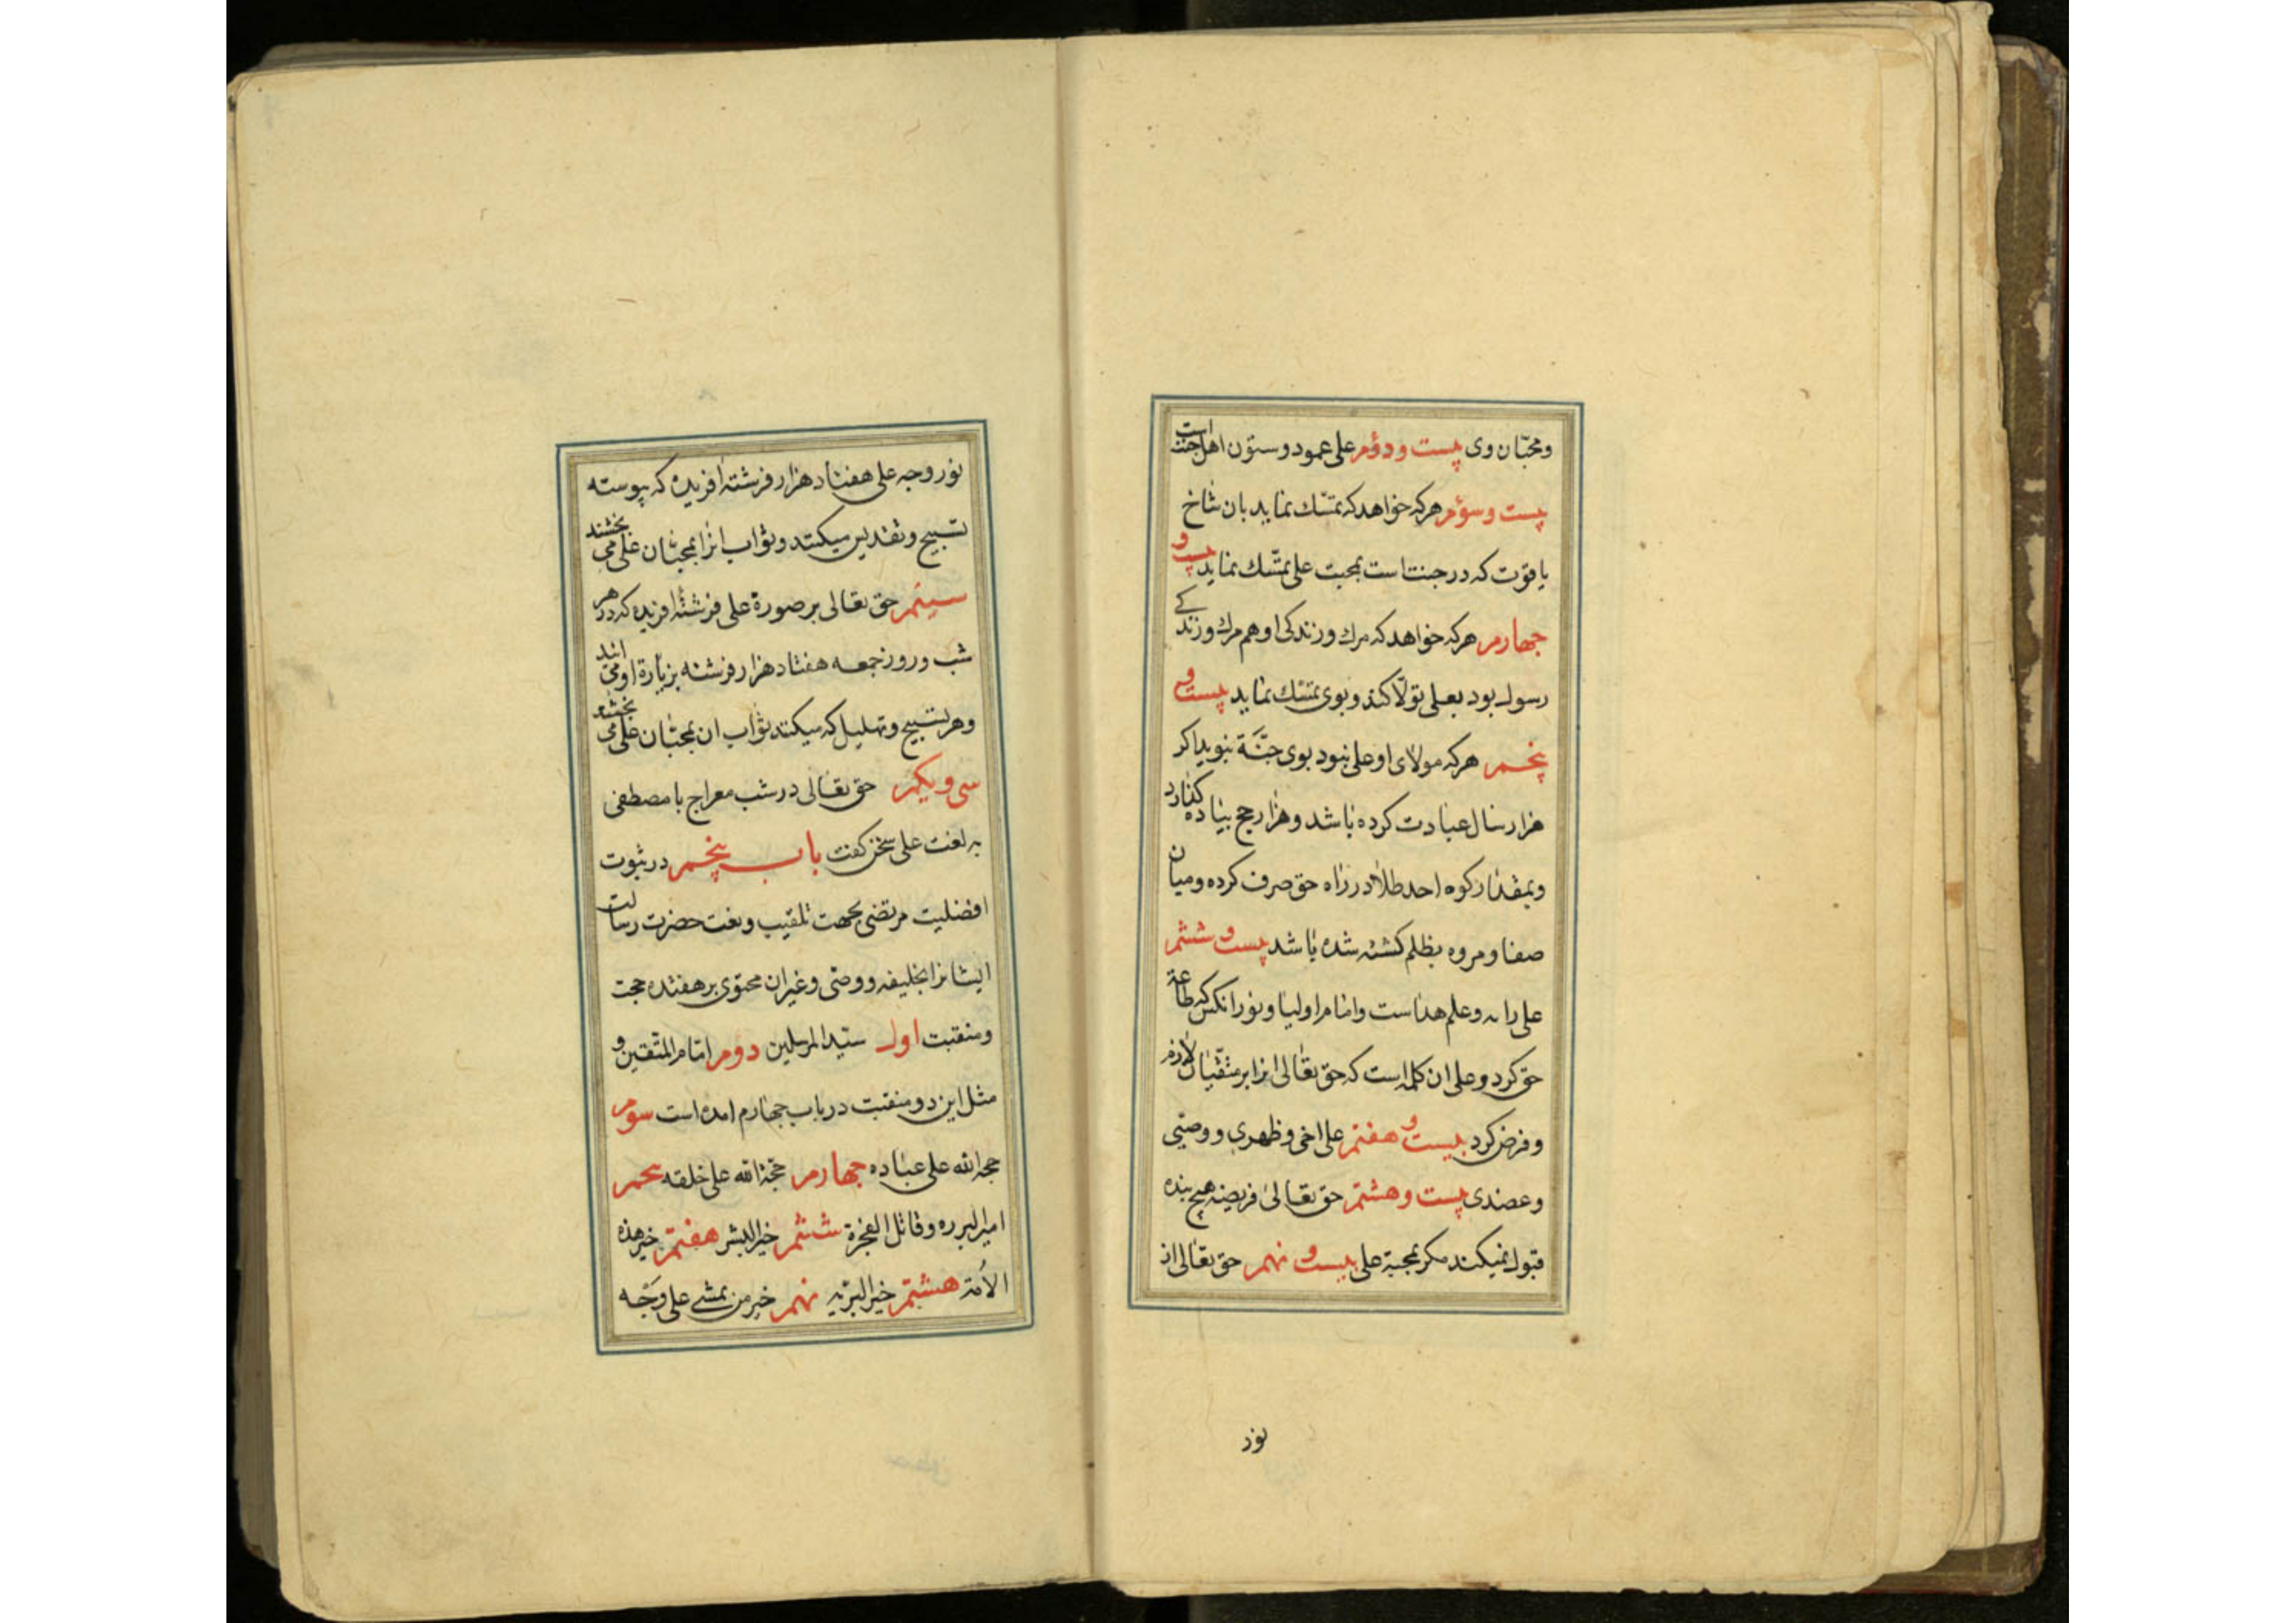 ومحبّان وی بیست ودوم علی عمود وستون اهل جنت است
بیست وسوم هرکه خواهد که تمسّک نماید بان شاخ
یاقوت که در جنت است بمحبت علی تمسّک نماید بیست و
چهارم هرکه خواهد که مرک وزندکی او هم مرک وزندکی
رسول بود بعلی تولّا کند وبوی تمسّک نماید بیست و
پنجم هرکه مولای او علی نبود بوی جنّة نبوید اکر
هزار سال عبادت کرده باشد وهزار حج پیاده کذارد
وبمقدار کوه احد طلا در راه حق صرف کرده ومیان
صفا ومروه بظلم کشته شده باشد بیست و ششم
علی رایه وعلم هداست وامام اولیا ونور انکس که طاعة
حق کرد وعلی ان کلمه است که حق تعالی انرا بر متقیان لازم
وفرض کرد بیست و هفتم علی اخی وظهری ووصیّی
وعضدی بیست وهشتم حق تعالی فریضه هیچ بنده
قبول نمیکند مکر بمحبة علی بیست و نهم حق تعالی از
نور
نور وجه علی هفتاد هزار فرشته افریده که پیوسته
تسبیح وتقدیس میکنند وثواب انرا بمحبّان علی می بخشند
سیئم حق تعالی بر صورة علی فرشتهٔ افریده که در هر
شب وروز جمعه هفتاد هزار فرشته بزیارة او می ایند
وهر تسبیح وتهلیل که میکنند ثواب ان بمحبّان علی می بخشند
سی ویکم حق تعالی در شب معراج با مصطفی
به لغت علی سخن کفت باب پنجم در ثبوت
افضلیت مرتضی بجهت تلقیب ونعت حضرت رسالت
ایشانرا بخلیفه ووصّی وغیران محتوی بر هفتده حجت
ومنقبت اول سیّد المرسلین دوم امام المتّقین و
مثل این دو منقبت در باب چهارم امده است سوم
حجه الله علی عباده چهارم حجّة الله علی خلقه پنجم
امیر البرره وقاتل الفجرة ششم خیر البشر هفتم خیر هذه
الاُمة هشتم خیر البریّه نهم خیر من یمشے علی وجه